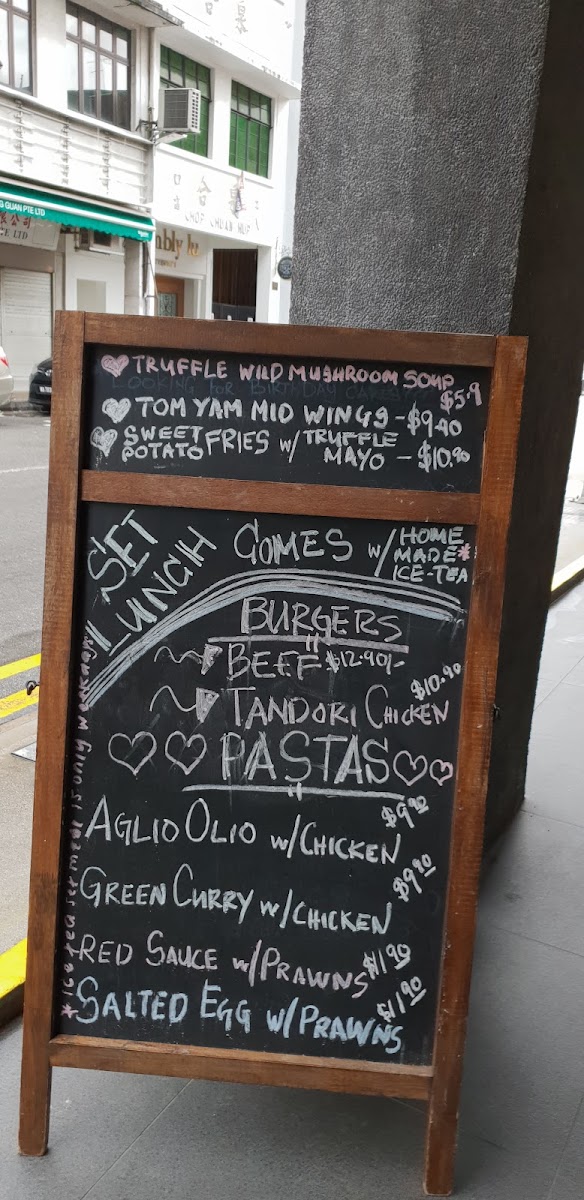 G GUAN PTE LTD
E LTD
CHOP CHUAN HUP
mbly lu
TRUFFLE WILD MUSHROOM SOUP
$5.9
LOOKING for BIRTHDAY CAKES???
TOM YAM MID WINGS - $9.90
SWEET POTATO FRIES w/ TRUFFLE MAYO - $10.90
SET LUNCH
COMES w/ HOME MADE* ICE-TEA
BURGERS
BEEF $12.90/-
TANDORI CHICKEN $10.90
PASTAS
AGLIO OLIO w/CHICKEN $9.90
GREEN CURRY w/CHICKEN $9.90
RED SAUCE w/PRAWNS $11.90
SALTED EGG w/PRAWNS $11.90
*Ice tea set meal is only weekdays